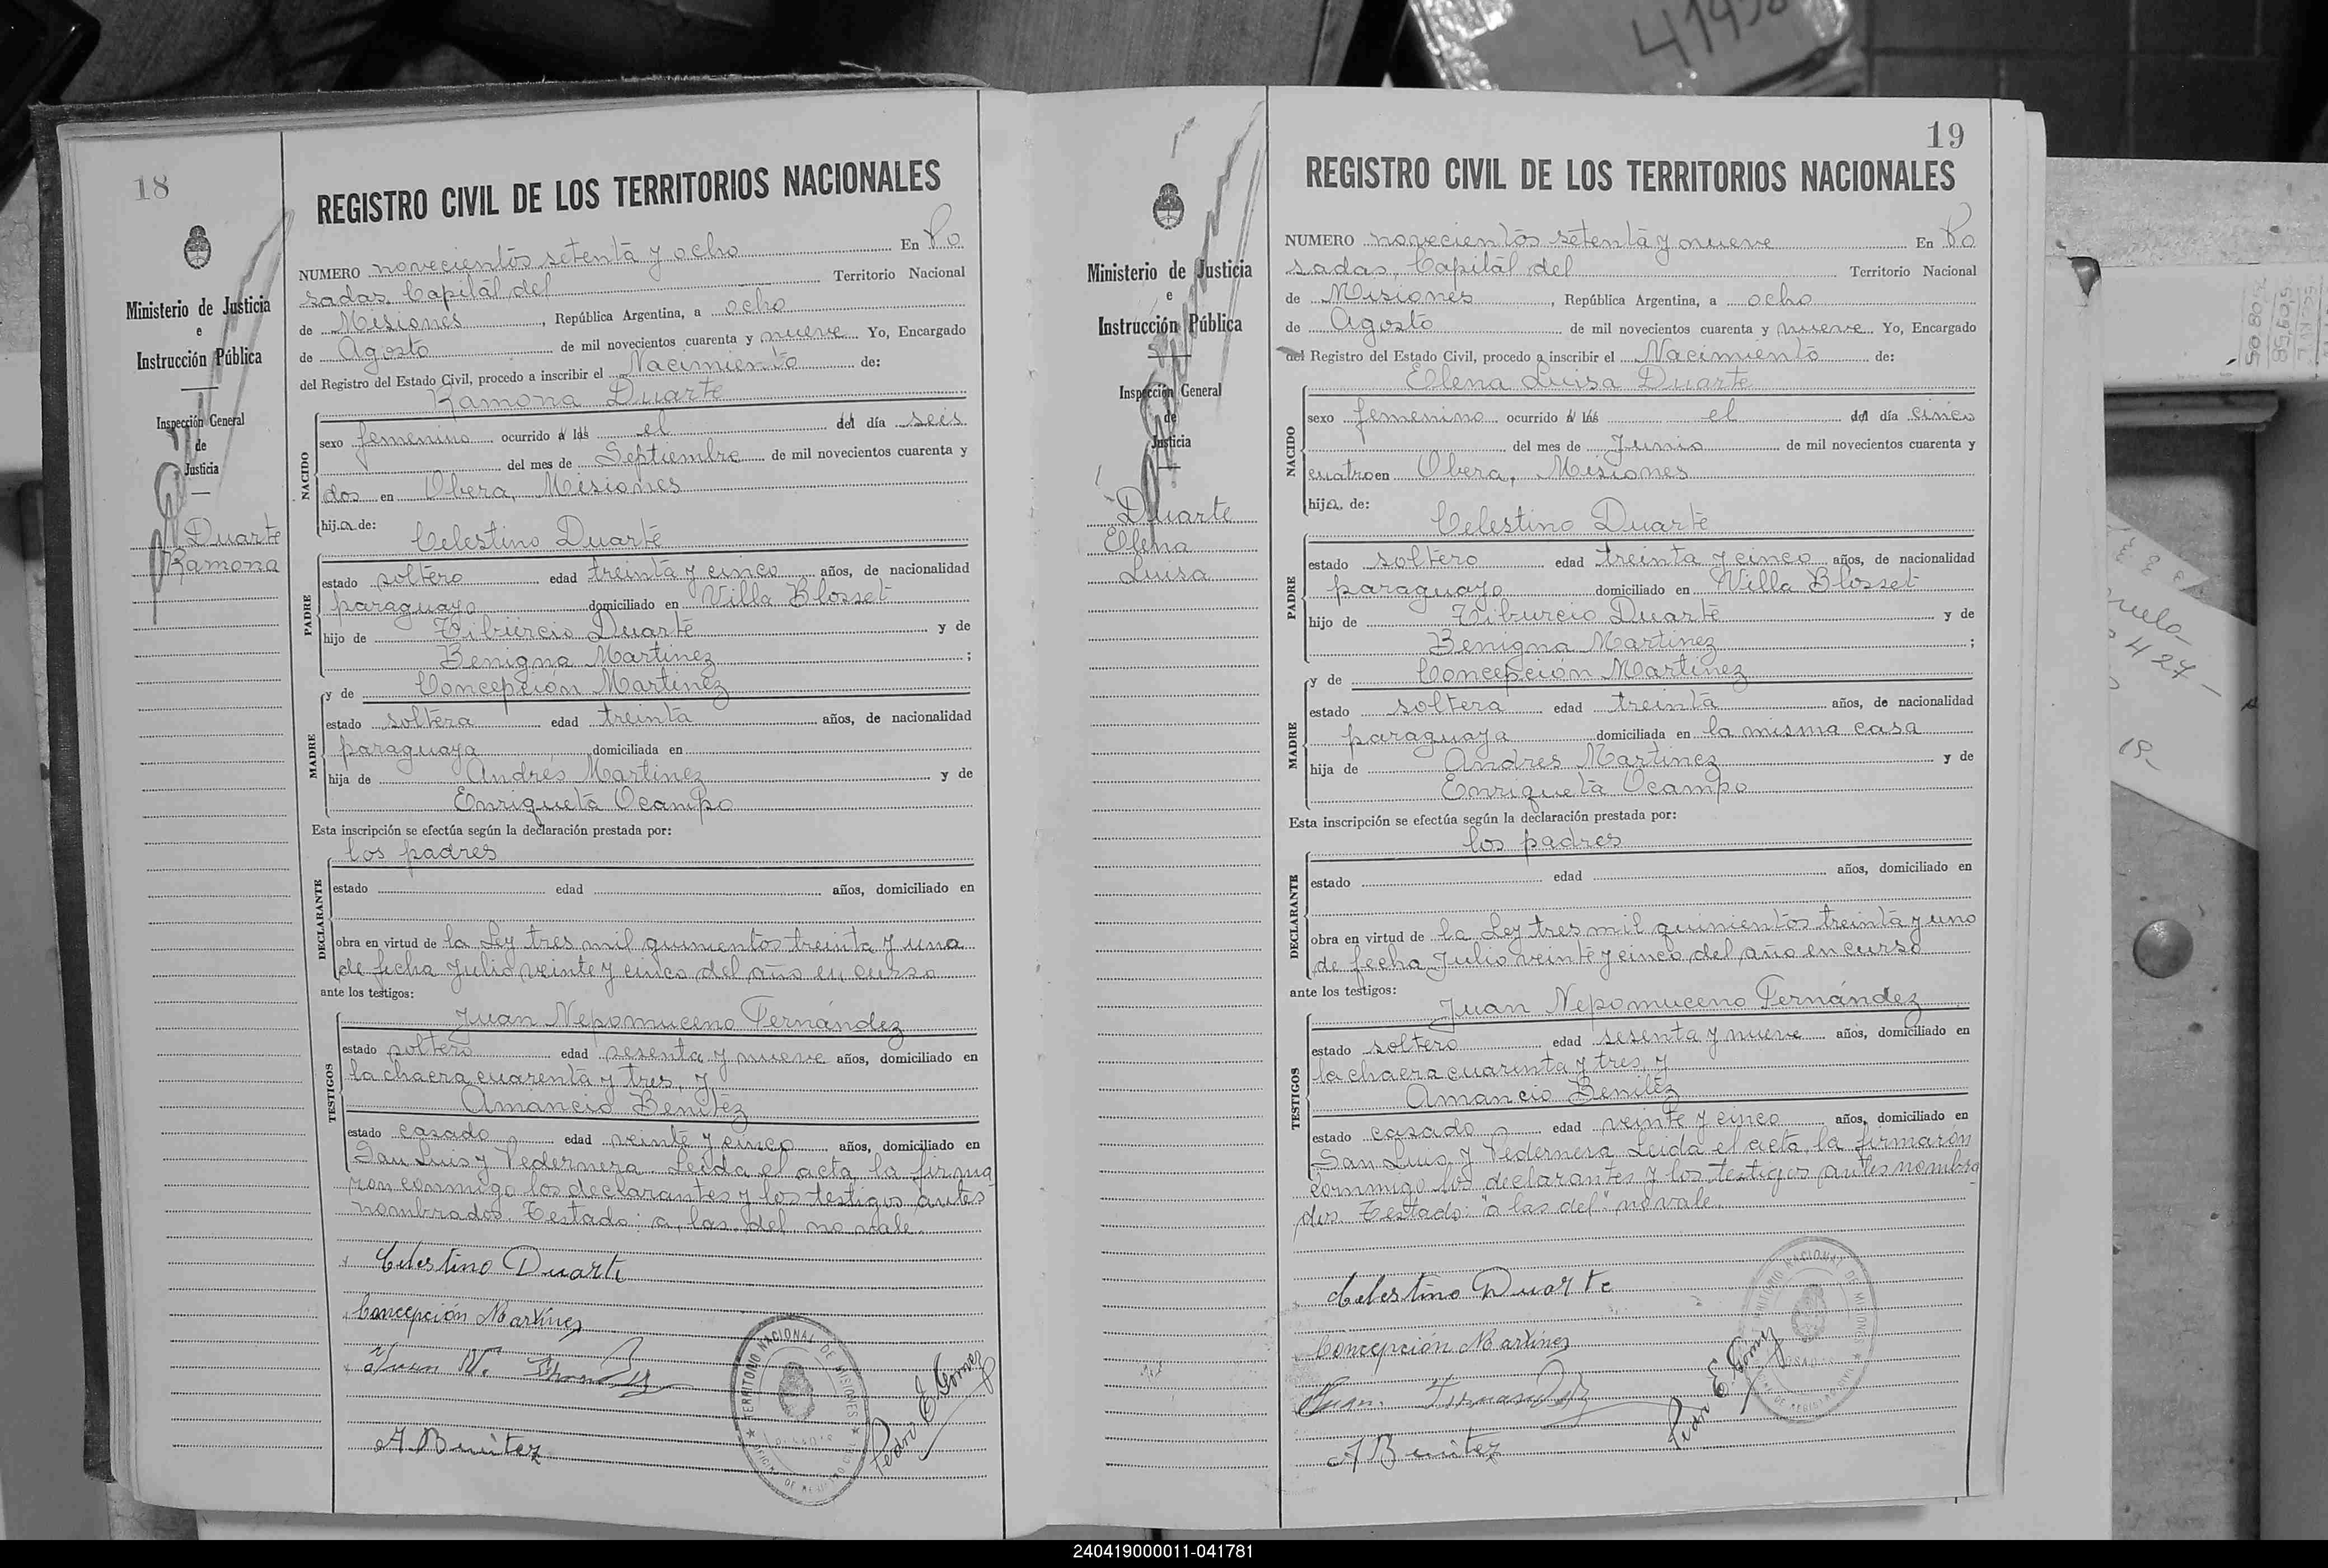 41498
18
REGISTRO CIVIL DE LOS TERRITORIOS NACIONALES
Ministerio de Justicia
e
Instrucción Pública
Inspección General
de
Justicia
Duarte
Ramona
NUMERO novecientos setenta y ocho En Po
sadas, Capital del Territorio Nacional
de Misiones, República Argentina, a ocho
de Agosto de mil novecientos cuarenta y nueve Yo, Encargado
del Registro del Estado Civil, procedo a inscribir el Nacimiento de:
Ramona Duarte
NACIDO
sexo femenino ocurrido a las el del día seis
del mes de Septiembre de mil novecientos cuarenta y
dos en Obera, Misiones
hija de:
Celestino Duarte
PADRE
estado soltero edad treinta y cinco años, de nacionalidad
paraguayo domiciliado en Villa Blosset
hijo de Tiburcio Duarte y de
Benigna Martinez ;
y de Concepción Martinez
MADRE
estado soltera edad treinta años, de nacionalidad
paraguaya domiciliada en
hija de Andrés Martinez y de
Enriqueta Ocampo
Esta inscripción se efectúa según la declaración prestada por:
los padres
DECLARANTE
estado edad años, domiciliado en
obra en virtud de la Ley tres mil quinientos treinta y uno
de fecha Julio veinte y cinco del año en curso
ante los testigos:
Juan Nepomuceno Fernández
TESTIGOS
estado soltero edad sesenta y nueve años, domiciliado en
la chacra cuarenta y tres, y
Amancio Benitéz
estado casado edad veinte y cinco años, domiciliado en
San Luis y Pedernera. Leída el acta, la firma
ron conmigo los declarantes y los testigos antes
nombrados. Testado: a las del no vale.
Celestino Duarte
Concepción Martinez
Juan N. Fernandez
A. Benitez
Pedro E. Gomez
TERRITORIO NACIONAL DE MISIONES
OFICINA DE REGISTRO CIVIL
19
REGISTRO CIVIL DE LOS TERRITORIOS NACIONALES
Ministerio de Justicia
e
Instrucción Pública
Inspección General
de
Justicia
Duarte
Elena
Luisa
NUMERO novecientos setenta y nueve En Po
sadas, Capital del Territorio Nacional
de Misiones, República Argentina, a ocho
de Agosto de mil novecientos cuarenta y nueve Yo, Encargado
del Registro del Estado Civil, procedo a inscribir el Nacimiento de:
Elena Luisa Duarte
NACIDO
sexo femenino ocurrido a las el del día cinco
del mes de Junio de mil novecientos cuarenta y
cuatro en Obera, Misiones
hija de:
Celestino Duarte
PADRE
estado soltero edad treinta y cinco años, de nacionalidad
paraguayo domiciliado en Villa Blosset
hijo de Tiburcio Duarte y de
Benigna Martinez ;
y de Concepción Martinez
MADRE
estado soltera edad treinta años, de nacionalidad
paraguaya domiciliada en la misma casa
hija de Andres Martinez y de
Enriqueta Ocampo
Esta inscripción se efectúa según la declaración prestada por:
los padres
DECLARANTE
estado edad años, domiciliado en
obra en virtud de la Ley tres mil quinientos treinta y uno
de fecha Julio veinte y cinco del año en curso
ante los testigos:
Juan Nepomuceno Fernández
TESTIGOS
estado soltero edad sesenta y nueve años, domiciliado en
la chacra cuarenta y tres, y
Amancio Benitéz
estado casado edad veinte y cinco años, domiciliado en
San Luis, y Pedernera Leida el acta, la firmarón
conmigo los declarantes y los testigos antes nombra
dos. Testado: "a las del" no vale.
Celestino Duarte
Concepción Martinez
Juan. Fernandez
A Benitez
Pedro E. Gomez
TERRITORIO NACIONAL DE MISIONES
OFICINA DE REGISTRO CIVIL
240419000011-041781